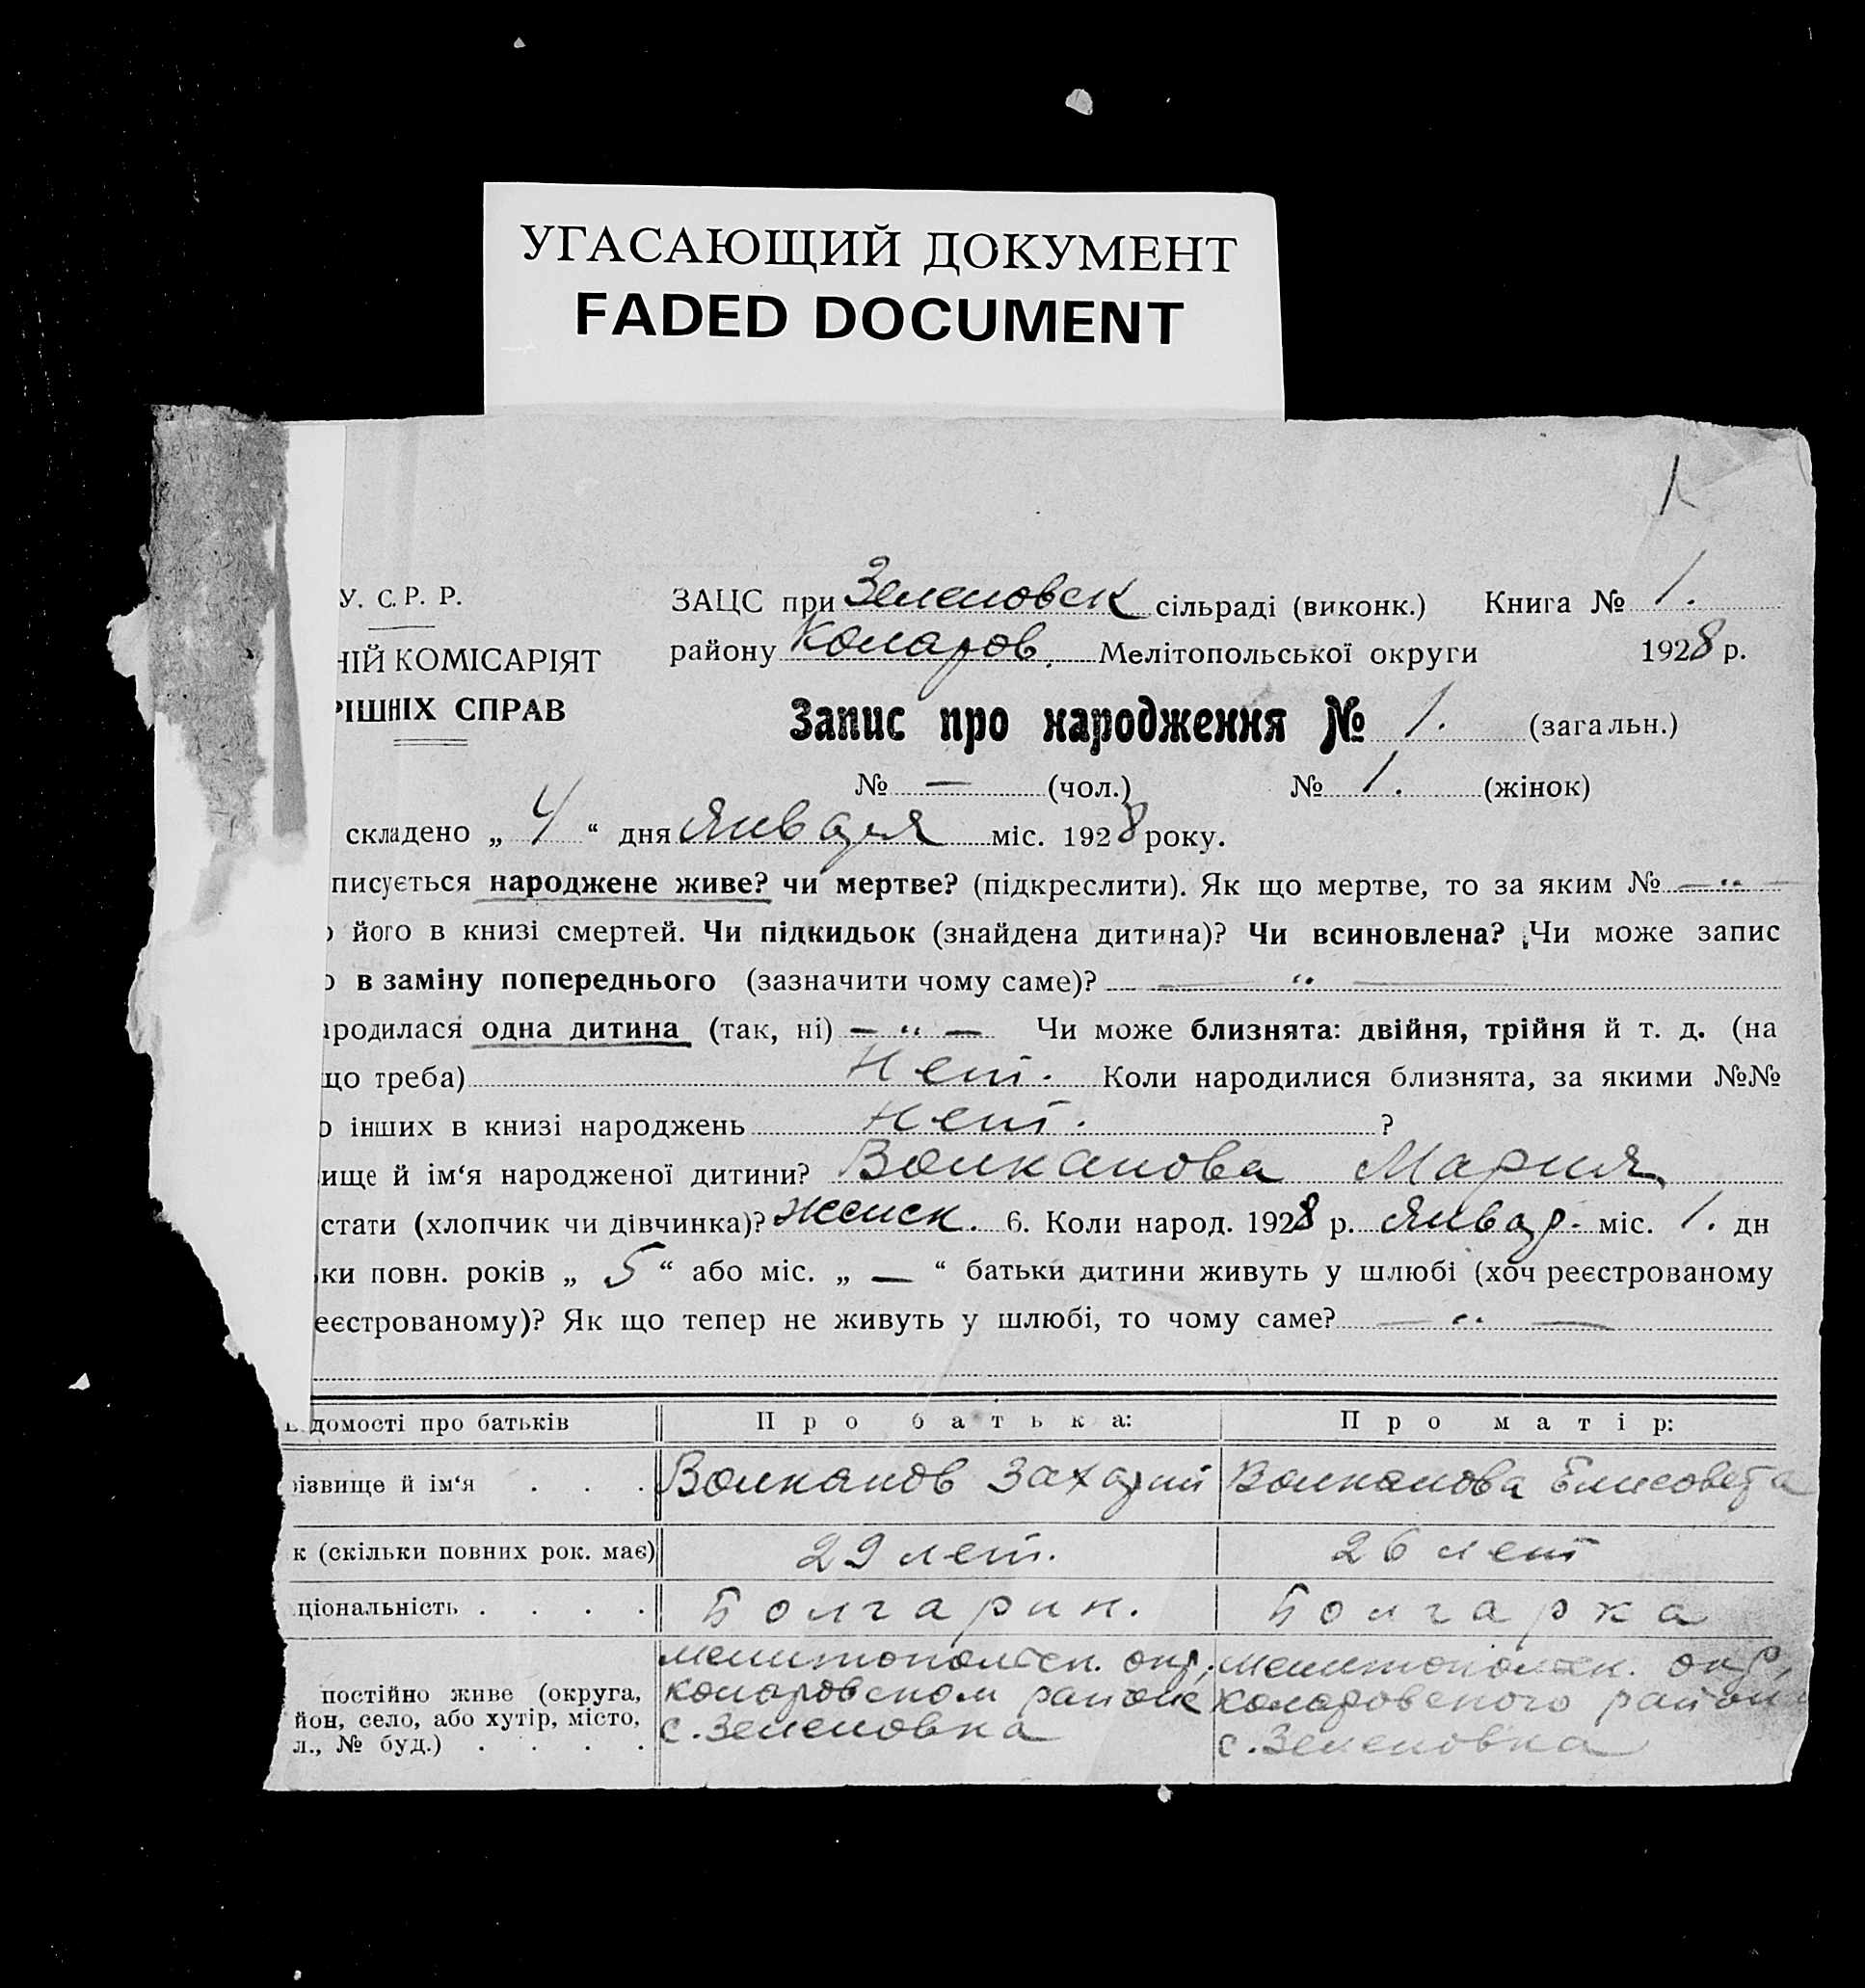 УГАСАЮЩИЙ ДОКУМЕНТ
FADED DOCUMENT
1
У. С. Р. Р.
НІЙ КОМІСАРІЯТ
РІШНІХ СПРАВ
ЗАЦС при Зеленовск сільраді (виконк.) Книга № 1.
району Коларов. Мелітопольської округи 1928 р.
Запис про народження № 1. (загальн.)
№ — (чол.) № 1. (жінок)
складено „ 4 “ дня Января міс. 1928 року.
писується народжене живе? чи мертве? (підкреслити). Як що мертве, то за яким № — " —
о його в книзі смертей. Чи підкидьок (знайдена дитина)? Чи всиновлена? Чи може запис
о в заміну попереднього (зазначити чому саме)? — " —
ародилася одна дитина (так, ні) — " — Чи може близнята: двійня, трійня й т. д. (на
що треба) Нет. Коли народилися близнята, за якими №№
о інших в книзі народжень Нет. ?
вище й ім‘я народженої дитини? Волканова Мария
стати (хлопчик чи дівчинка)? Женск. 6. Коли народ. 1928 р. Январ. міс. 1. дн
ки повн. років „ 5 “ або міс. „ — “ батьки дитини живуть у шлюбі (хоч реєстрованому
еєстрованому)? Як що тепер не живуть у шлюбі, то чому саме? — " —
ідомості про батьків Про батька: Про матір:
різвище й ім‘я . . . Волканов Захарий Волканова Елисовета
к (скільки повних рок. має) 29 лет. 26 лет
ціональність . . . . Болгарин. Болгарка
постійно живе (округа,
йон, село, або хутір, місто,
л., № буд.) . . . .
Мелитопольск. окр,
Коларовском районе
с. Зеленовка
Мелитопольск. окр,
Коларовского район
с. Зеленовка